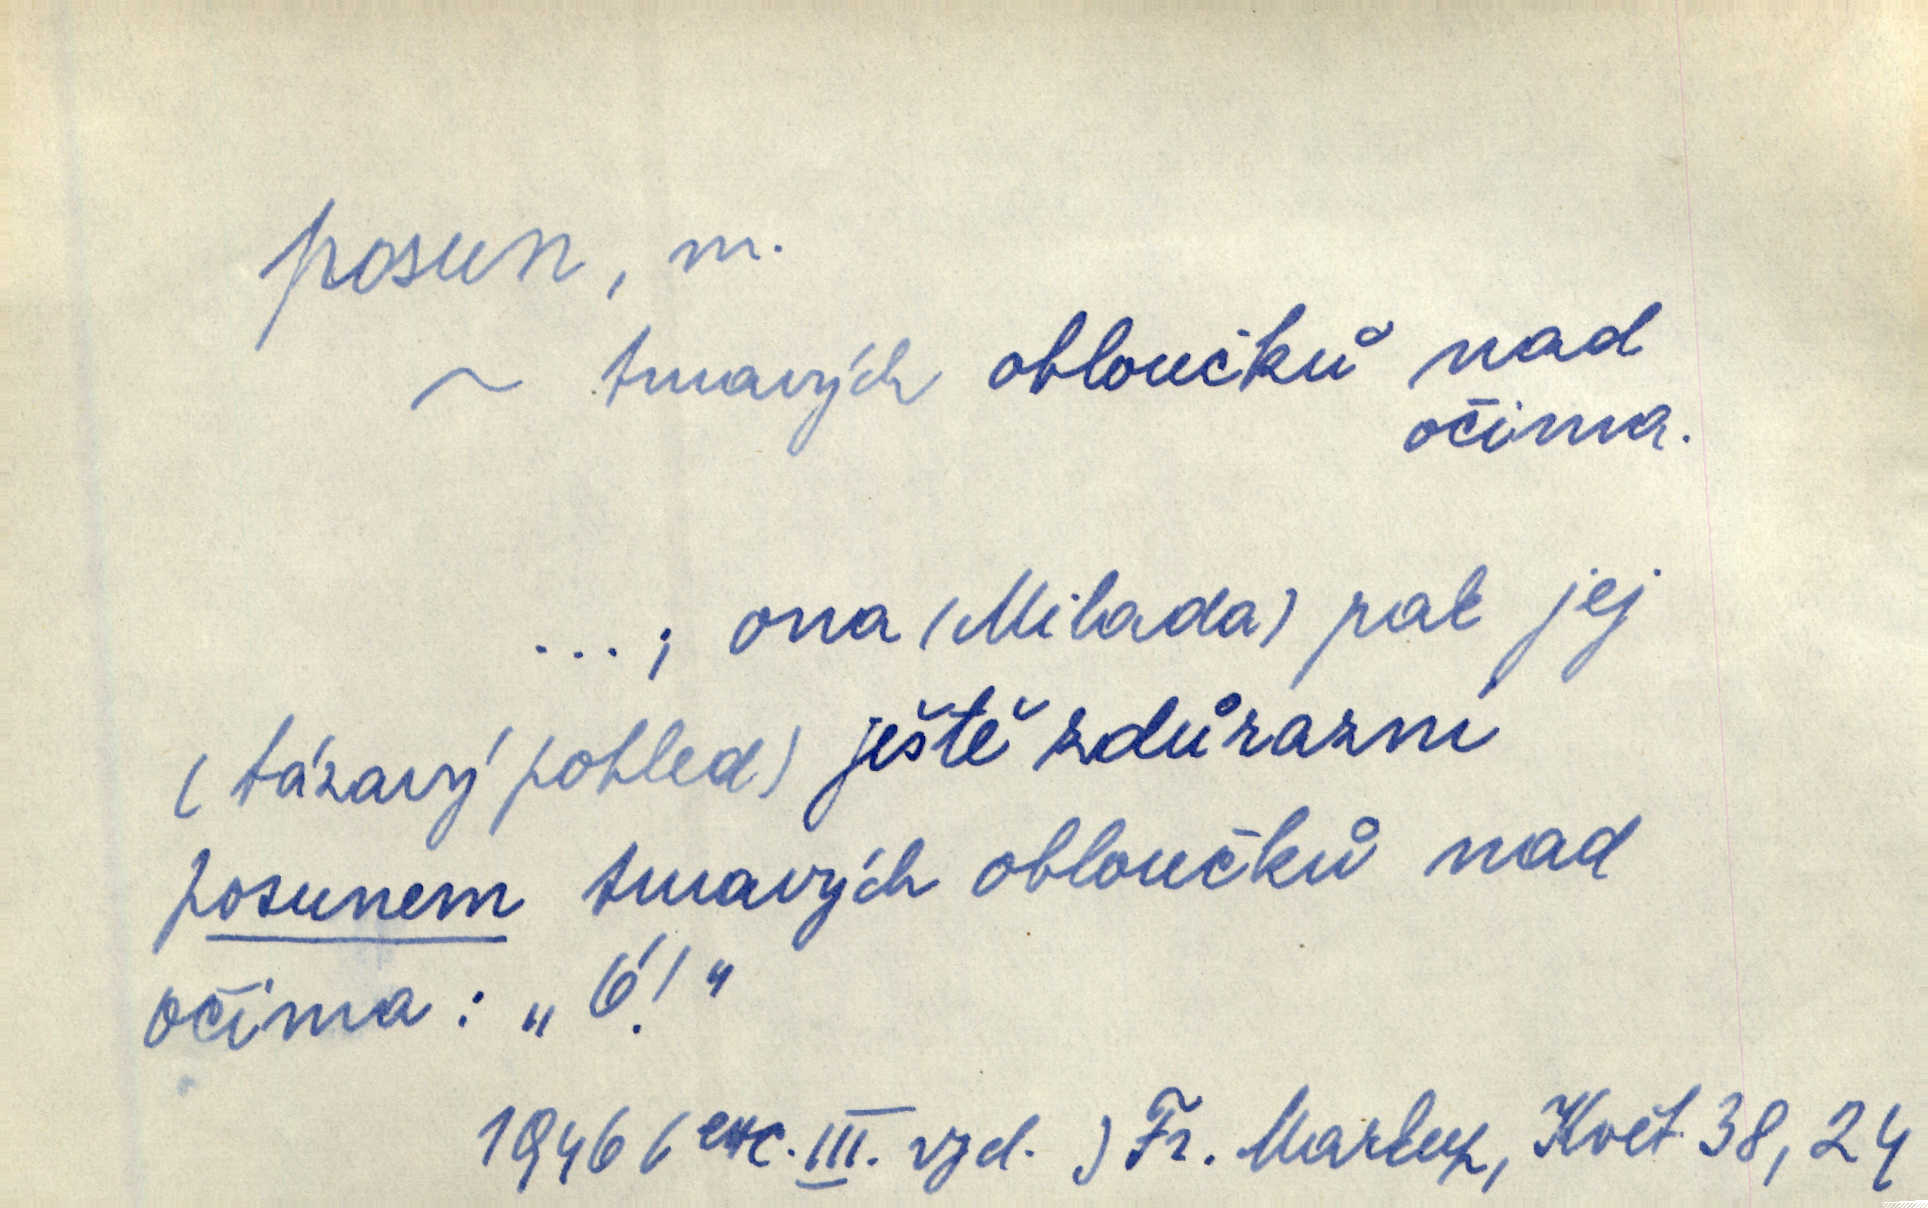 posun, m.
~ tmavých obloučků nad
očima.
...; ona (Milada) pak jej
(tázavý pohled) ještě zdůrazní
posunem tmavých obloučků nad
očima: „Ó!“
1946 (exc. III. vyd.) Fr. Květ. 38, 24